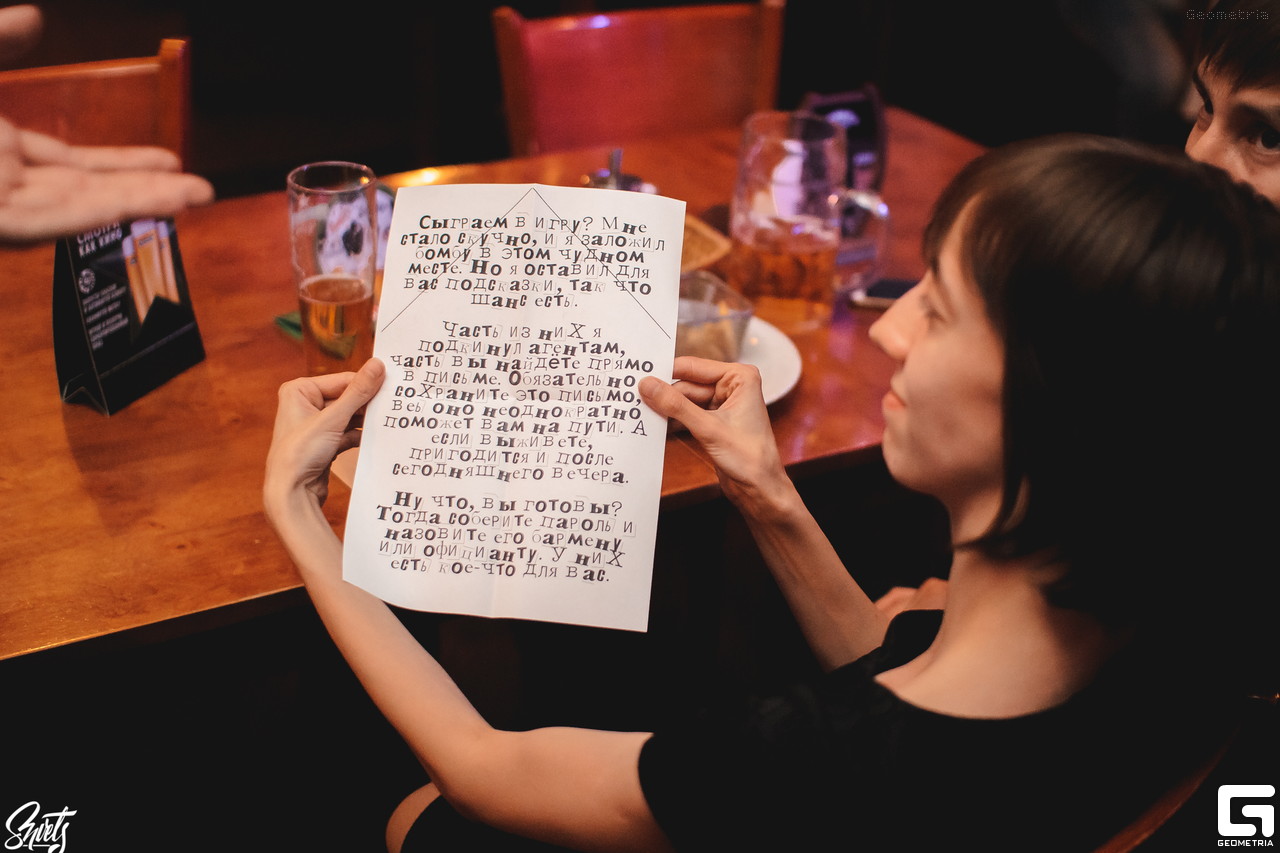 Geometria
СМОТРИ
КАК КИНО
Сыграем в игру? Мне
стало скучно, и я заложил
бомбу в этом чудном
месте. Но я оставил для
вас подсказки, так что
шанс есть.
Часть из них я
подкинул агентам,
часть вы найдёте прямо
в письме. Обязательно
сохраните это письмо,
ведь оно неоднократно
поможет вам на пути. А
если выживете,
пригодится и после
сегодняшнего вечера.
Ну что, вы готовы?
Тогда соберите пароль и
назовите его бармену
или официанту. У них
есть кое-что для вас.
Shvets
GEOMETRIA